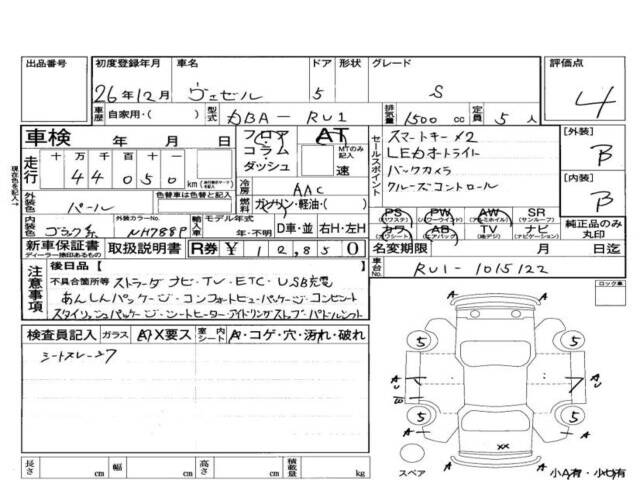 出品番号 初度登録年月 車名 ドア 形状 グレード 評価点
26年12月 ヴェゼル 5 S 4
車歴 自家用・( ) 型式 DBA-RU1 排気量 1500 cc 定員 5 人
車検 年 月 日 フロア コラム ダッシュ AT MTのみ記入 速
セールスポイント スマートキー×2
LEDオートライト
バックカメラ
クルーズコントロール
[外装] B
[内装] B
現在色を記入→
走行 十 万 千 百 十 一
4 4 0 5 0 km
冷房 AAC
外装色 パール 色替車は色替と記入 燃料 ガソリン・軽油・( )
内装色 ブラック系 外装カラーNo. NH788P 輸入車 モデル年式 年・不明 D車・並 右H・左H
PS (パワステ) PW (パワーウインド) AW (アルミホイル) SR (サンルーフ)
カワ (カワシート) AB (エアバック) TV (地デジ) ナビ (ナビゲーション) 純正品のみ丸印
新車保証書 ディーラー捺印あるもの 取扱説明書 R券 ¥ 12,850
名変期限 月 日迄
車台No. RU1-1015122
注意事項 後日品 [ ]
不具合箇所等 ストラーダナビ・TV・ETC・USB充電
あんしんパッケージ・コンフォートビューパッケージ・コンビシート
スタイリッシュパッケージ・シートヒーター・アイドリングストップ・パドルシフト
ロック車
検査員記入 ガラス A・X要ス 室内 シート A・コゲ・穴・汚れ・破れ
シートスレ
5 5
A A
U U
5 5
A A
A
××
スペア
小A有・小U有
長さ cm 幅 cm 高さ cm 積載量 kg